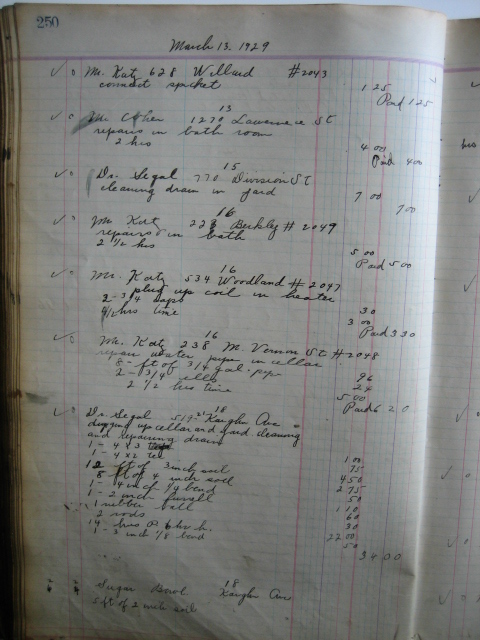 250
March 13. 1929
Mr. Katz 628 Willard #2043
connect spicket 1 25
Paid 1 25
13
Mr Cohen 1270 Lawrence St
repairs in bath room 4 00
2 hrs Paid 4 00
15
Dr. Segal 770 Division St
cleaning drain in yard 7 00
7 00
16
Mr Katz 228 Berkley # 2049
repairs in bath 5 00
2 1/2 hrs Paid 5 00
16
Mr. Katz 534 Woodland # 2047
plug up coil in heater
2 - 3/4 caps 30
hrs time 3 00
Paid 3 30
16
Mr. Katz 238 Mt. Vernon St #2048
repair water pipe in cellar
8 - ft of 3/4 gal. pipe 96
2 - 3/4 ells 24
2 1/2 hrs time 5 00
Paid 6 20
18
Dr. Segal Kaighn Ave
digging up cellar and yard cleaning
and repairing drain
1 - 4 x 3 1 00
1 - 4 x 2 tee 75
12 ft of 3 inch soil 4 50
8 ft of 4 inch soil 2 75
1 - 4 inch 1/4 bend 50
1 - 2 inch 1 10
1 rubber ball 60
2 rods 30
14 hrs 22 00
1 - 3 inch 1/8 bend 50
34 00
18
Sugar Bowl Kaighn Ave
5 ft of 2 inch soil